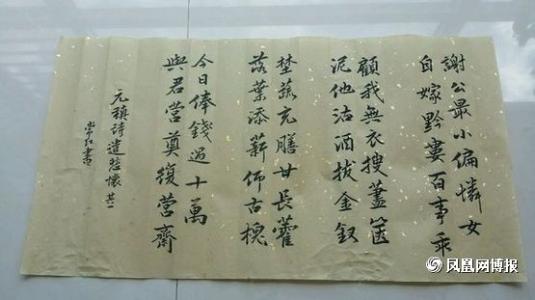 謝公最小偏憐女
自嫁黔婁百事乖
顧我無衣搜藎篋
泥他沽酒拔金釵
埜蔬充膳甘長藿
落葉添薪仰古槐
今日俸錢過十萬
與君營奠復營齋
元稹詩遣悲懷其一
書
凤凰网博报